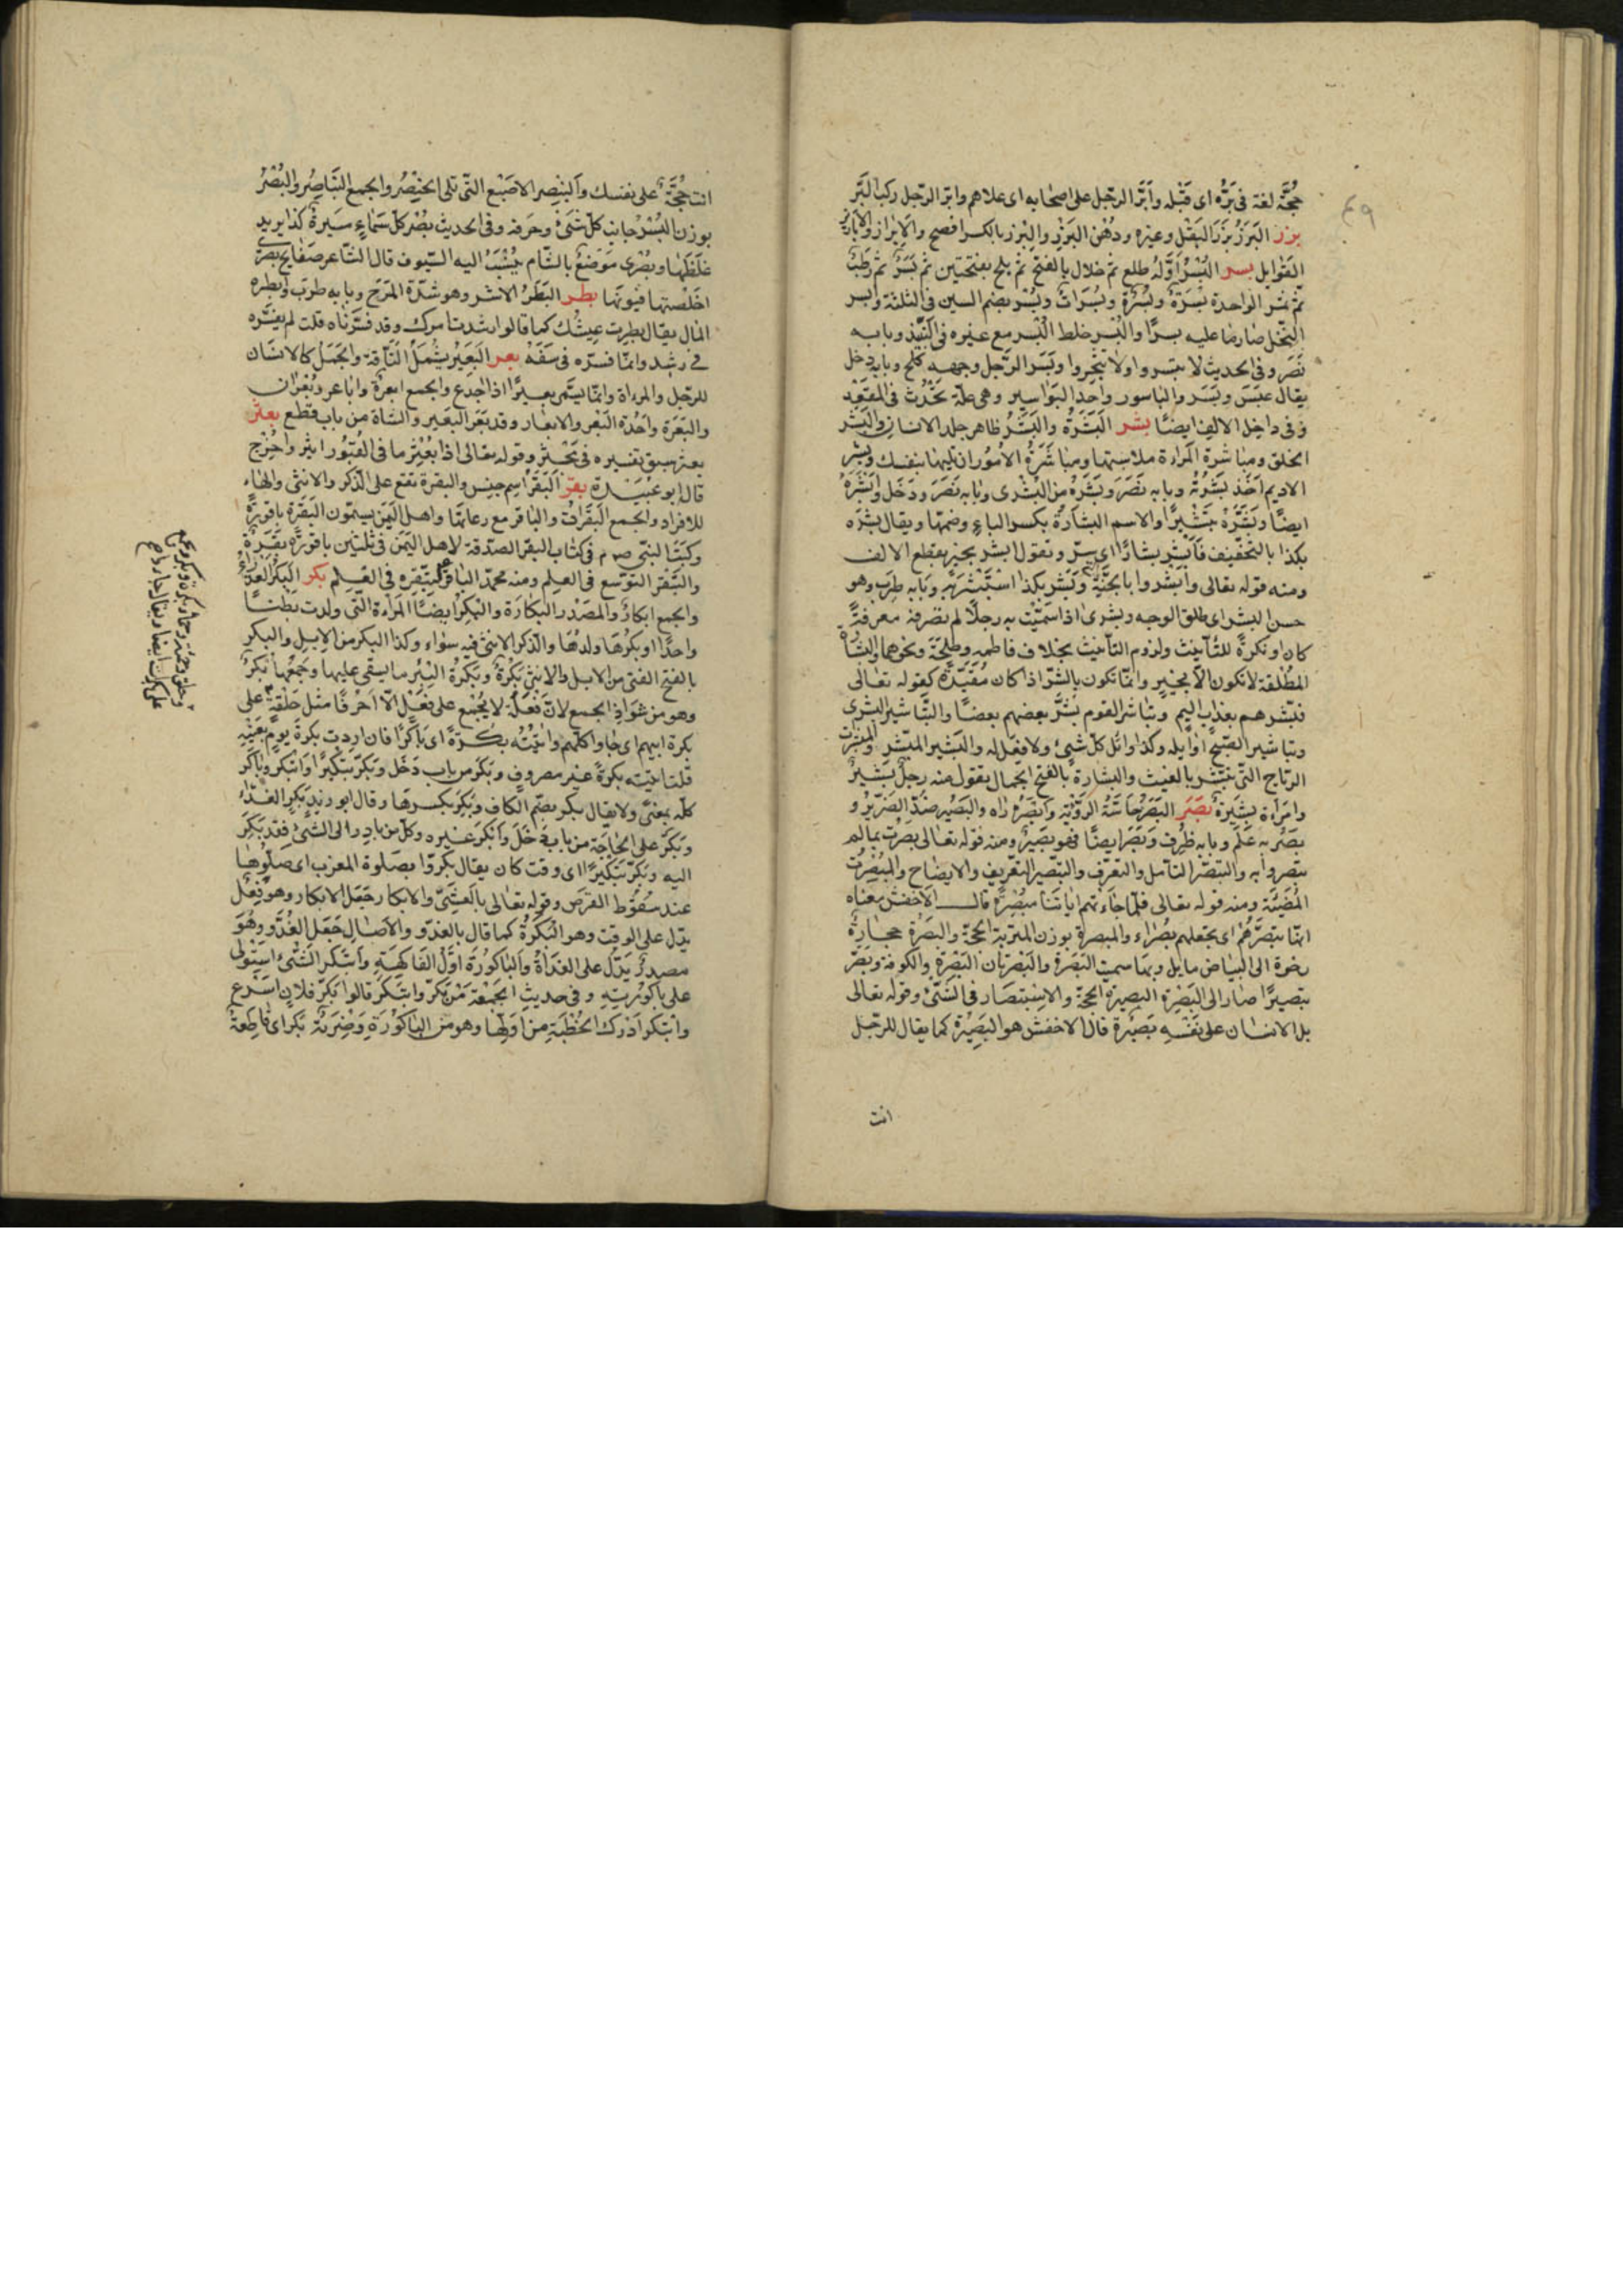 ٤٩
حُجَّة لغة فى بَرَّه اى قَبْله وأَبَرَّ الرجل على اصحابه اى علاهم وابرّ الرّجل ركب البَرّ
بزر البَزرُ بَزرُ البَقْل وغيره ودُهْن البَزْر والبِزر بالكسر افصح والابزار والابازير
التَوابل بسر البُسْرُ اَوّلُه طلع ثم خلال بالفتح ثم بلح بفتحتين ثم بُسْرٌ ثم رُطَبٌ
ثم تمر الواحدة بُسْرَةٌ وبُسُرَةٌ وبُسُرَاتٌ وبُسُرٌ بضم السين فى الثلثة وابسر
النخل صار ما عليه بسرًا والبُسْر خلط البُسْر مع غيره فى النَّبِيذ وبابه
نَصَر وفى الحديث لا تبسروا ولا تَثْجُروا وبَسَر الرّجل وجهه كلح وبابه دخل
يقال عَبَسَ وبَسَر والباسور واحد البَوَاسير وهى علّة تَحْدُث فى المقعَد
وفى داخل الانف ايضًا بشر البَشَرَةُ والبَشَرُ ظاهر جلد الانسان والبَشَر
الخلق ومباشرة المراة ملامستها ومباشَرَةُ الأمُور ان تليها بنفسك وبشر
الاديم اَخَذ بَشَرَتُه وبابه نَصَرَ وبَشَرَه من البُشْرى وبابه نَصَرَ ودَخَل واَبْشَرَهُ
ايضًا وبَشَّرَهُ تَبْشيرًا والاسم البِشَارَةُ بكسر الباء وضمّها ويقال بشرَه
بكذا بالتخفيف فَاَبْشَر ابشارًا اى سرّ وتقول ابشر بخير بقطع الالف
ومنه قوله تعالى وأبشروا بالجَنَّةِ وبَشِر بكذا اسْتَبْشَرَ به وبابه طرب وهو
حسن البشر اى طلق الوجه وبشرى اذا سَمّيْت به رجلًا لم تصرفه معرفةً
كان او نكرةً للتأنيث ولزوم التأنيث بخلاف فاطمه وطلحَة ونحوهما والبشَارة
المُطْلقة لا تكون الّا بخيرٍ وانّما تكون بالشّرّ اذا كان مُقَيّدةً كقوله تعالى
فبَشّرهم بعذاب اليم وتباشر القوم بَشَّر بعضهم بعضًا والتَّباشير البُشرى
وتباشير الصّبح اوائله وكذا اوائل كلّ شىء ولا فِعْل له والبَشير المبشّر والمبشرات
الرّياح التّى تُبَشّر بالغيث والبشارةُ بالفتح الجمال تقول منه رجلٌ بَشيرٌ
وامرأة بَشيرَةٌ بصر البَصَرُ حَاسّة الرؤية وأبْصَرَهُ رَاه والبَصيْر ضدّ الضَّرِيْر و
بَصُرَ به عَلمَ وبابه ظرُف وبَصَرًا ايضًا فهو بَصيرٌ ومنه قوله تعالى بصُرْت بما لم
يبصروا به والتبصّر التأمل والتعرّف والتبصير التعريف والايضاح والمُبْصِرَة
المُضيئَة ومنه قوله تعالى فلمّا جَاءَتهم اياتنَا مُبْصِرَةً قال الاخفش معناه
انّها تبصّرهُم اى تجعلهم بُصَرَاء والمبصرة بوزن المتربة الحجّة والبَصْرَة حجارَةٌ
رخوة الى البياض مايل وبها سميت البَصْرَة والبَصْرتان البَصْرَة والكوفة وبَصَّرَ
تبصيرًا صَار الى البَصْرَة البصيرة الحجّة والاستبصَار فى الشئ وقوله تعالى
بل الانسان على نفسه بَصيرَة قال الاخفش هو البَصِيرَة كما يقال للرّجل
انت
انت حُجَّةٌ على نفسك والبِنْصِر الاصْبَع التّى تلى الخِنْصِر والجمع البَناصِر والبُصْرُ
بوزن البُسْر جانب كلّ شَىْءٍ وحَرفه وفى الحديث بُصْر كلّ سَمَاءٍ مَسيرة كذا يريد
غلَظها وبُصْرى مَوضعٌ بالشّام يُنْسَبُ اليه السّيوف قال الشاعر صَفَايح بصرى
اَخْلَصتها قيونها بطر البَطَرُ الاشر وهو شدّة المَرَح وبابه طرب وابطره
المال يقال بطرت عيشُك كما قالوا رشدت امرك وقد فسّرناه قلت لم يفسّره
فى رشد وانّما فسّره فى سَفِهَ بعر البَعِيْر يشْمَلُ النَّاقة والجَمَلُ كالانسَان
للرّجل والمراة وانّما يسَمّى بعيرًا اذا اجذع والجمع ابعرةٌ واباعر وبُعْرَان
والبَعَرَة واحدة البَعَر والابعار وقد بَعَر البَعير والشاة من باب قطع بعثر
بعثر سبق تفسيره فى بحثر وقوله تعالى اذا بُعْثِر ما فى القُبُور اثير واخرج
قال ابو عُبَيْدة بقر البَقَرُ اسم جنس والبقرة تقع على الذكر والانثى والهَاء
للافراد والجمع البَقَرَاتُ والباقر مع رعاتها واهل اليَمَن يسمّون البَقَرَة باقورَةً
وكتب النبى صم فى كتاب البقر الصدّقة لاهل اليَمَن فى ثلثين باقورَةً بَقَرَةٌ
والتبقّر التوسّع فى العلم ومنه محمّد الباقر لتبقّره فى العِلم بكر البِكر العذراء
والجمع ابكارٌ والمصْدر البَكارَة والبكرُ ايضًا المَراة التّى ولدت بطنًا
واحدًا وبِكرُهَا ولدُهَا والذكر والانثى فيه سَوَاء وكذا البكر من الابِل والبَكر
بالفتح الفتى من الابل والانثى بَكْرَةٌ وبَكْرَةُ البِئر ما يستقى عليها وجَمعُها بَكَرٌ
وهو من شَوَاذ الجمع لانّ فَعْلَة لا يُجْمع على فَعَل الّا اَحْرفًا مثل حَلقة على
بكرة ابيهم اى جَاوا كلّهم واتيتُه بُكْرةً اى بَاكرًا فان اردت بكرة يومٍ بعَيْنِه
قلت اتيته بكرةَ غير مصروفٍ وبَكَرَ من باب دَخَل وبَكّر تبْكيرًا وابتكر وبَاكر
كلّه بمعنًى ولا يقال بكر بضمّ الكاف وبَكِرَ بكسرها وقال ابو زيد بَكَر الغداء
وبَكَرَ على الحَاجَة من باب دَخَلَ وأبكرَ غيره وكلّ من بادر الى الشىء فقد بَكّرَ
اليه وبَكّر تبْكيرًا اى وقت كان يقال بَكّروا بصَلوة المغرب اى صَلّوْهَا
عند سُقُوط القرص وقوله تعالى بالعَشِىّ والابكار جَعَل الابكار وهو فِعْل
يدّل على الوقت وهو البُكرَةُ كما قال بالغدوّ والآصال جَعَل الغُدُوّ وهُوَ
مصدرٌ يَدُلّ على الغدَاةَ والباكورَة اوّلُ الفَاكهَةِ وابتَكر الشَّىء استَوْلى
على باكورتهِ وفى حديث الجمعَة مَنْ بَكّرَ وابتكرَ قالوا بَكّر فلان اسْرع
وابتكر اَدْرك الخُطْبَة من اَوّلهَا وهو من البَاكورَة وضَرْبَةٌ بِكر اى قاطعَةٌ